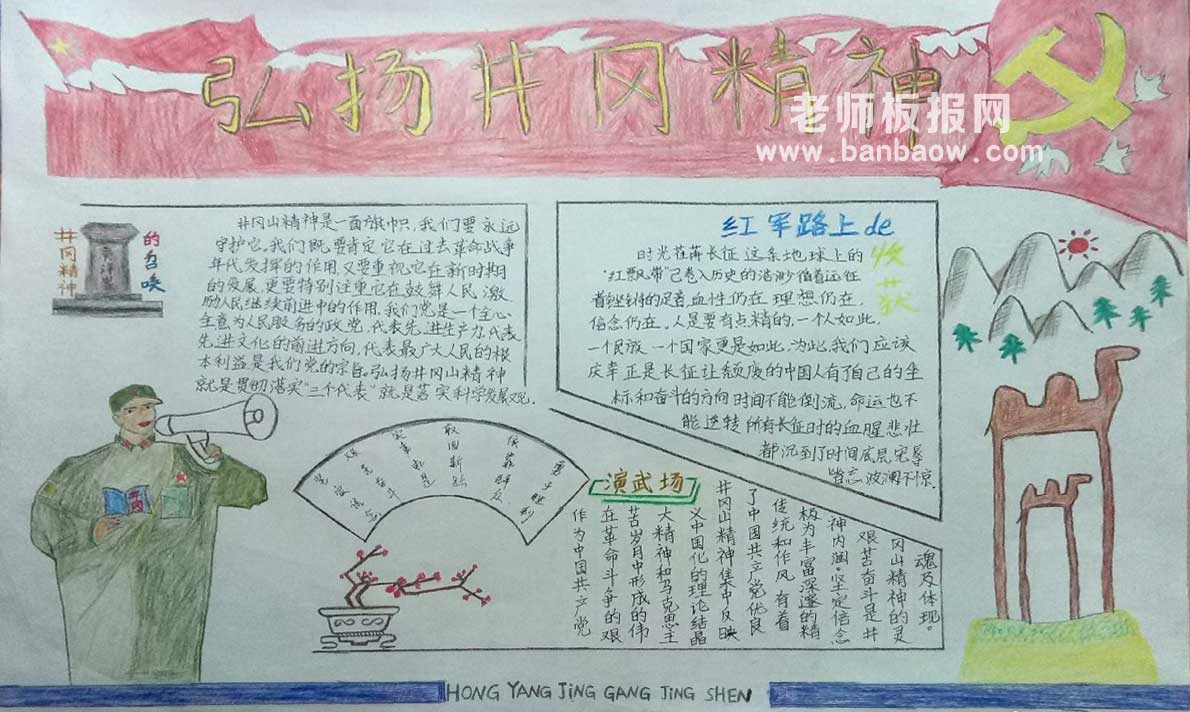 弘扬井冈精神
老师板报网
www.banbaow.com
井冈精神
的召唤
井冈山精神是一面旗帜,我们要永远
守护它,我们既要肯定它在过去革命战争
年代发挥的作用,又要重视它在新时期
的发展,更要特别注重它在鼓舞人民,激
励人民继续前进中的作用,我们党是一个全心
全意为人民服务的政党,代表先进生产力,代表
先进文化的前进方向,代表最广大人民的根
本利益是我们党的宗旨,弘扬井冈山精神
就是贯彻落实"三个代表"就是落实科学发展观。
红军路上de
收获
时光荏苒长征这条地球上的
"红飘带"已卷入历史的浩渺
血性仍在,理想仍在,
信念仍在。人是要有点精的,一个人如此,
一个民族一个国家更是如此,为此,我们应该
庆幸正是长征让颓废的中国人有了自己的坐
标和奋斗的方向时间不能倒流,命运也不
能逆转所有长征时的血腥悲壮
都沉到了时间底层宠辱
皆忘波澜不惊
井冈
勇于胜利
依靠群众
敢闯新路
实事求是
艰苦奋斗
坚定信念
演武场
魂及体现。
冈山精神的灵
艰苦奋斗是井
神内涵。坚定信念
极为丰富深邃的精
传统和作风,有着
了中国共产党优良
井冈山精神集中反映
义中国化的理论结晶
大精神和马克思主
苦岁月中形成的伟
在革命斗争的艰
作为中国共产党
HONG YANG JING GANG JING SHEN